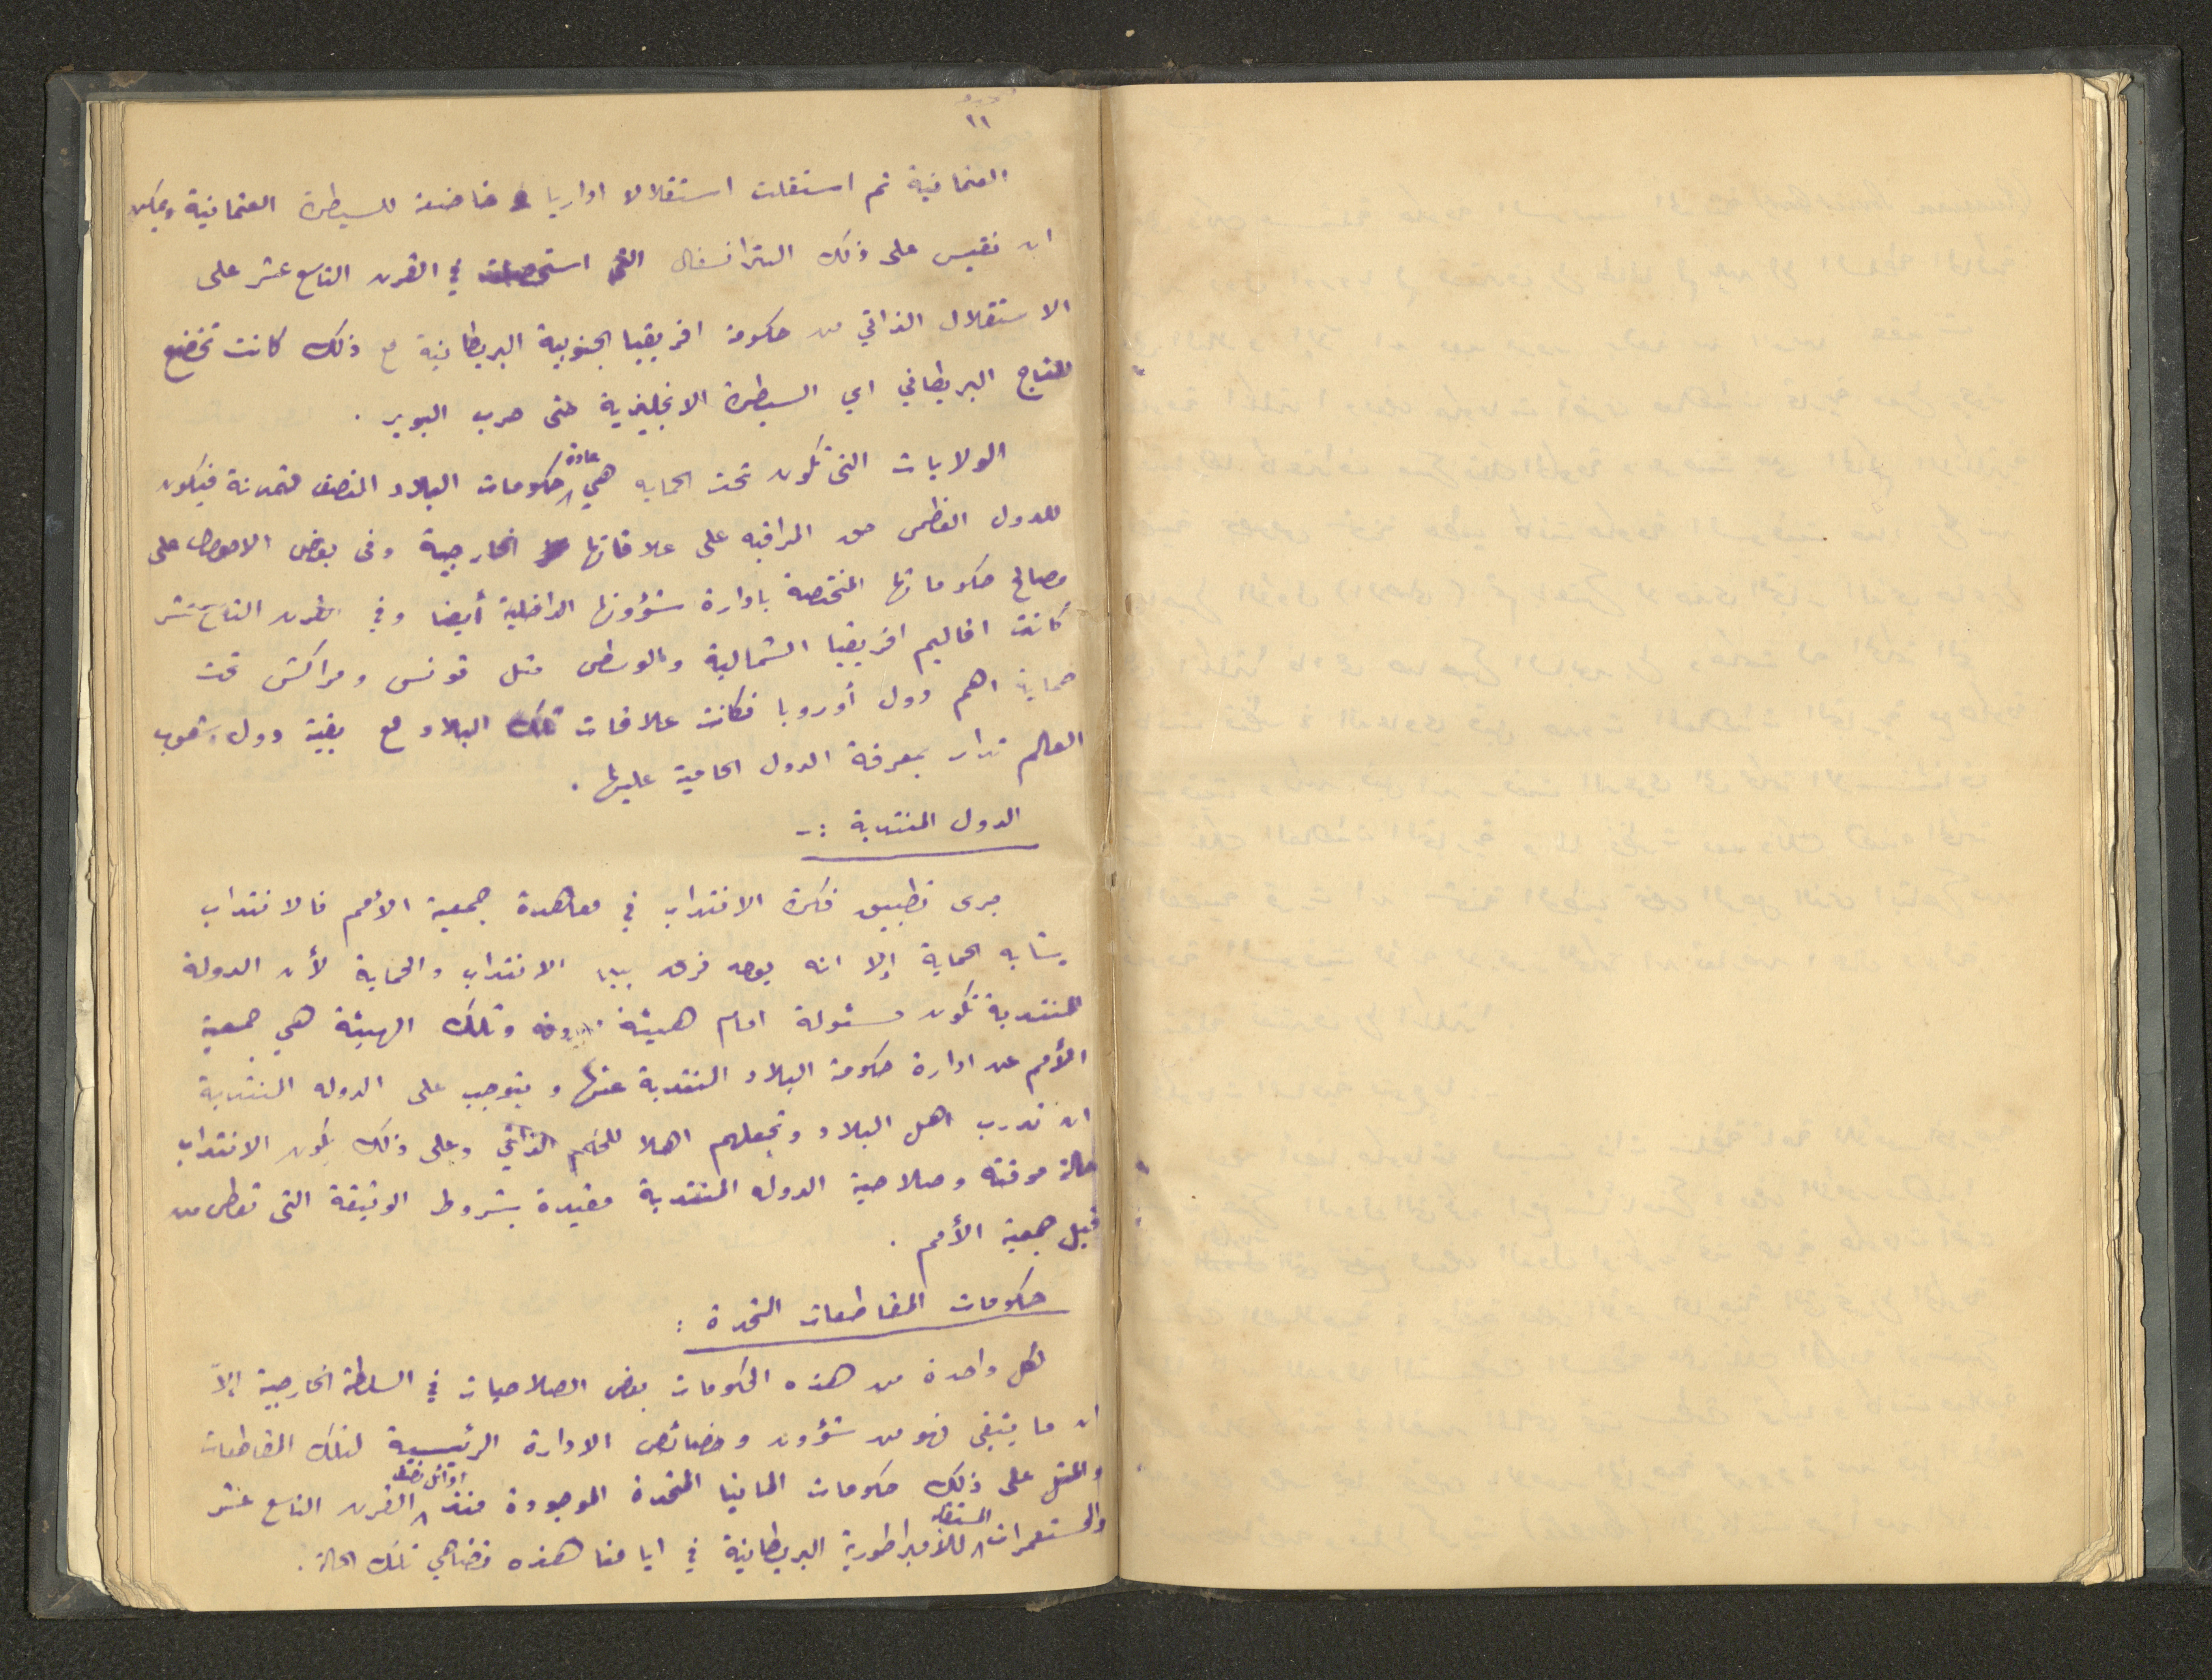 ١١
العثمانية ثم استقلت استقلالا اداريا خاضعة للسيطرة العثمانية ويمكن
ان نقيس على ذلك الترانسفال التى استحصلت في القرن التاسع عشر على
الاستقلال الذاتي من حكومة افريقيا الجنوبية البريطانية مع ذلك كانت تخضع
للتاج البريطاني اي السيطرة الانجليزية حتى حرب البوير .
الولايات التى تكون تحت الحمايه هي عادة حكومات البلاد المنصف متمدنة فيكون
للدول العظمى حق المراقبه على علاقاتها الخارجية وفى بعض الاحوال على
مصالح حكوماتها المختصة بادارة شؤونها الداخلية أيضا وفي القرن التاسع عشر
كانت اقاليم افريقيا الشمالية والوسطى مثل تونس ومراكش تحت
حماية اهم دول أوروبا فكانت علاقات تلك البلاد مع بقية دول وشعوب
العالم تدار بمعرفة الدول الحامية عليها .
الدول المنتدبة :-
جرى تطبيق فكرة الانتداب في معاهدة جمعية الأمم فالانتداب
يشابه الحماية إلا انه يوجد فرق بين الانتداب والحماية لأن الدولة
المنتدبة تكون مسئولة امام هيئة وتلك الهيئة هي جمعية
الأمم عن ادارة حكومة البلاد المنتدبة عنها ويتوجب على الدوله المنتدبة
ان تدرب اهل البلاد وتجعلهم اهلا للحكم الذاتي وعلى ذلك يكون الانتداب
حالة موقته وصلاحية الدوله المنتدبة مقيدة بشروط الوثيقة التى تعطى من
قبل جمعية الأمم .
حكومات المقاطعات المتحدة :
لكل واحدة من هذه الحكومات بعض الصلاحيات في السلطة الخارجية إلاّ
ان ما يتبقى فهو من شؤون وخصائص الادارة الرئيسية لتلك المقاطعات
والمثل على ذلك حكومات المانيا المتحدة الموجودة منذ اوائل القرن التاسع عشر
والمستعمرات المستقله للامبراطورية البريطانية في ايامنا هذه تضاهي تلك الحالة .